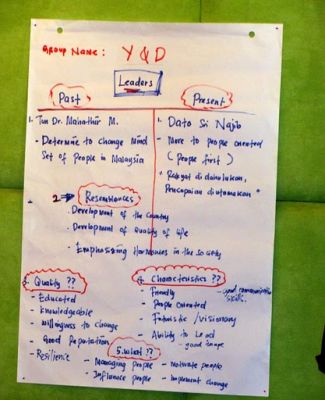 GROUP NAME : Y&D
Leaders
Past
Present
1. Tun Dr. Mahathir M.
- Determine to change Mind
Set of People in Malaysia
1. Dato Sri Najib
- More to people oriented
( People first )
" Rakyat didahulukan,
Pencapaian diutamakan "
2 Resemblances
. Development of the Country
. Development of Quality of life
. Emphasising Harmonies in the society
3. Quality ??
- Educated
- Knowledgeable
- Willingness to change
- Good Reputation
- Resilience
4. Characteristics ??
- Friendly
- good communication
skills.
- People Oriented
- Futuristic / Visionary
- Ability to Lead
- good image
5. What ??
- Managing people
- Influence people
- Motivate people
- Implement change